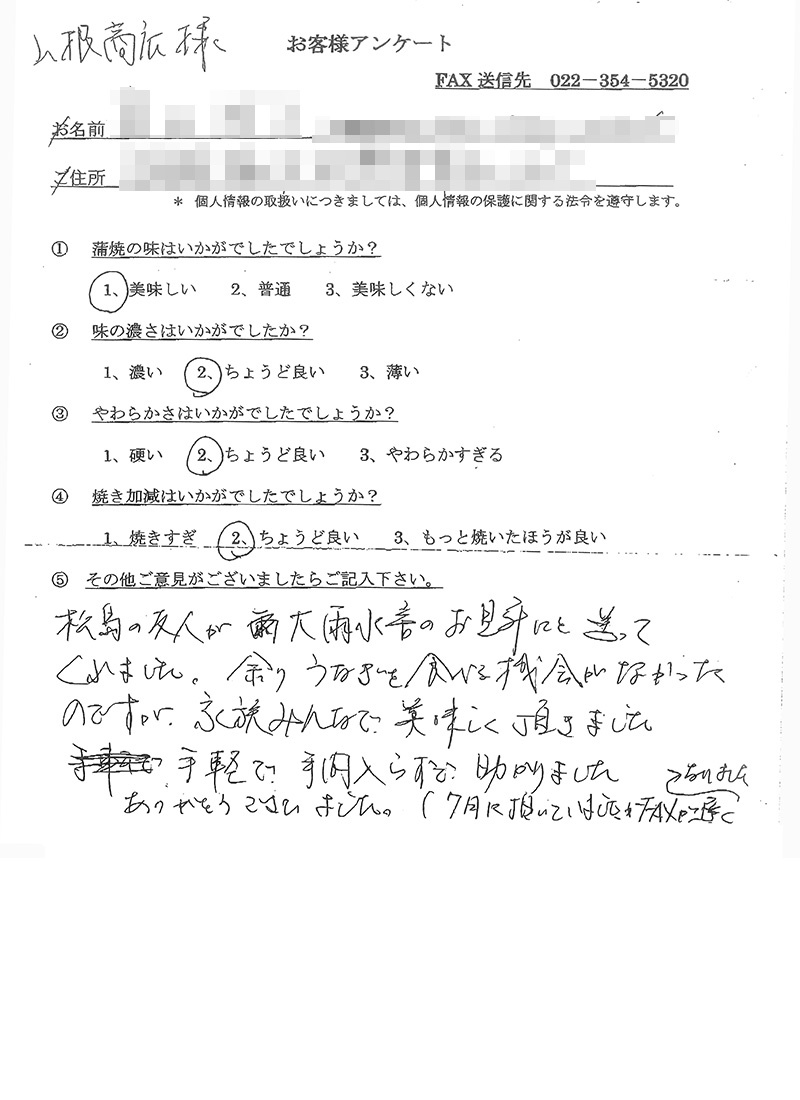 山根商店様
お客様アンケート
FAX送信先 022-354-5320
お名前
ご住所
* 個人情報の取扱いにつきましては、個人情報の保護に関する法令を遵守します。
① 蒲焼の味はいかがでしたでしょうか?
1、美味しい 2、普通 3、美味しくない
② 味の濃さはいかがでしたか?
1、濃い 2、ちょうど良い 3、薄い
③ やわらかさはいかがでしたでしょうか?
1、硬い 2、ちょうど良い 3、やわらかすぎる
④ 焼き加減はいかがでしたでしょうか?
1、焼きすぎ 2、ちょうど良い 3、もっと焼いたほうが良い
⑤ その他ご意見がございましたらご記入下さい。
松島の友人が 大雨水害のお見舞にと送って
くれました。余りうなぎを食べる機会がなかった
のですが、家族みんなで美味しく頂きました
手軽で手間入らずで助かりました
ありがとうございました。(7月に頂いていました FAXが遅く
なりました